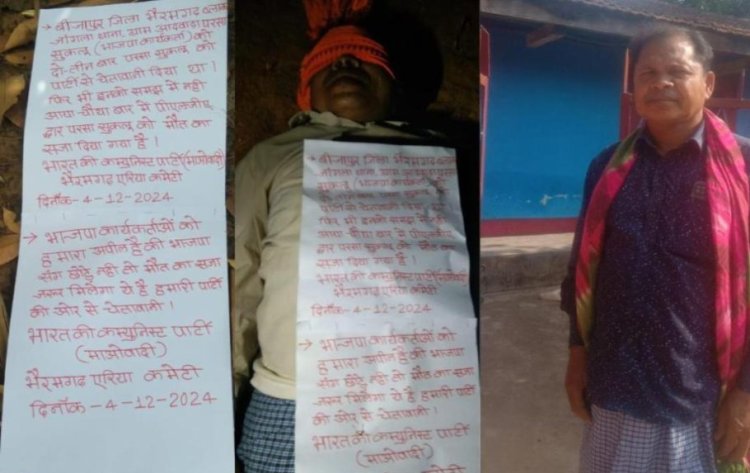 → बीजापुर जिला भैरमगढ़ ब्लाक
जांगला थाना, ग्राम आदवाड़ा परसा
सुकलू (भाजपा कार्यकर्ता) को
दो-तीन बार परसा सुकलू को
पार्टी से चेतावानी दिया था।
फिर भी इनकी समझ में नही
आया-चौथा बार में पीएलजीए
द्वारा परसा सुकलू को मौत का
सजा दिया गया है।
भारत की कम्युनिस्ट पार्टी(माओवादी)
भैरमगढ़ एरिया कमेटी
दिनाँक-4-12-2024
→ भाजपा कार्यकर्ताओं को
हमारा अपील है की भाजपा
संग छोड़े नही तो मौत का सजा
जरूर मिलेगा ये है हमारी पार्टी
की ओर से चेतावानी।
भारत की कम्युनिस्ट पार्टी
(माओवादी)
भैरमगढ़ एरिया कमेटी
दिनाँक-4-12-2024
→ बीजापुर जिला भैरमगढ़ ब्लाक
जांगला थाना, ग्राम आदवाड़ा परसा
सुकलू (भाजपा कार्यकर्ता) को
दो-तीन बार परसा सुकलू को
पार्टी से चेतावानी दिया था।
फिर भी इनकी समझ में नही
आया-चौथा बार में पीएलजीए
द्वारा परसा सुकलू को मौत का
सजा दिया गया है।
भारत की कम्युनिस्ट पार्टी(माओवादी)
भैरमगढ़ एरिया कमेटी
दिनाँक-4-12-2024
→ भाजपा कार्यकर्ताओं को
हमारा अपील है की भाजपा
संग छोड़े नही तो मौत का सजा
जरूर मिलेगा ये है हमारी पार्टी
की ओर से चेतावानी।
भारत की कम्युनिस्ट पार्टी
(माओवादी)
कमेटी